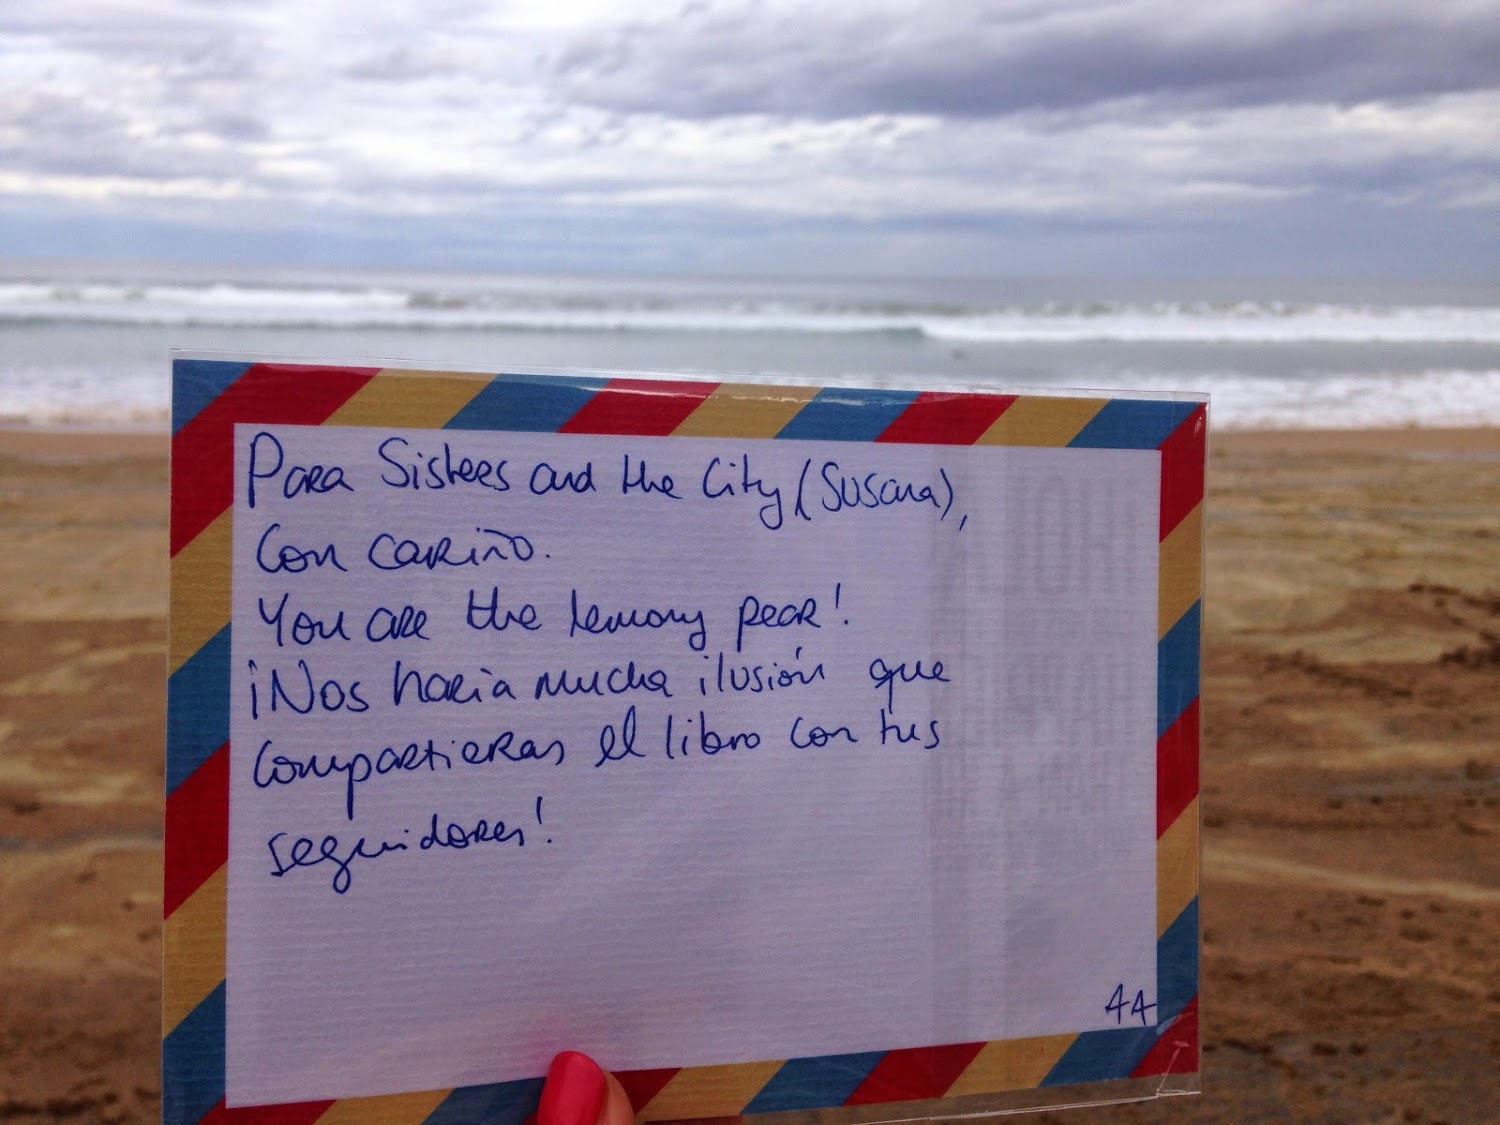 Para Sisters and the City (Susana),
Con cariño.
You are the lemony pear!
¡Nos haría mucha ilusión que
compartieras el libro con tus
seguidores!